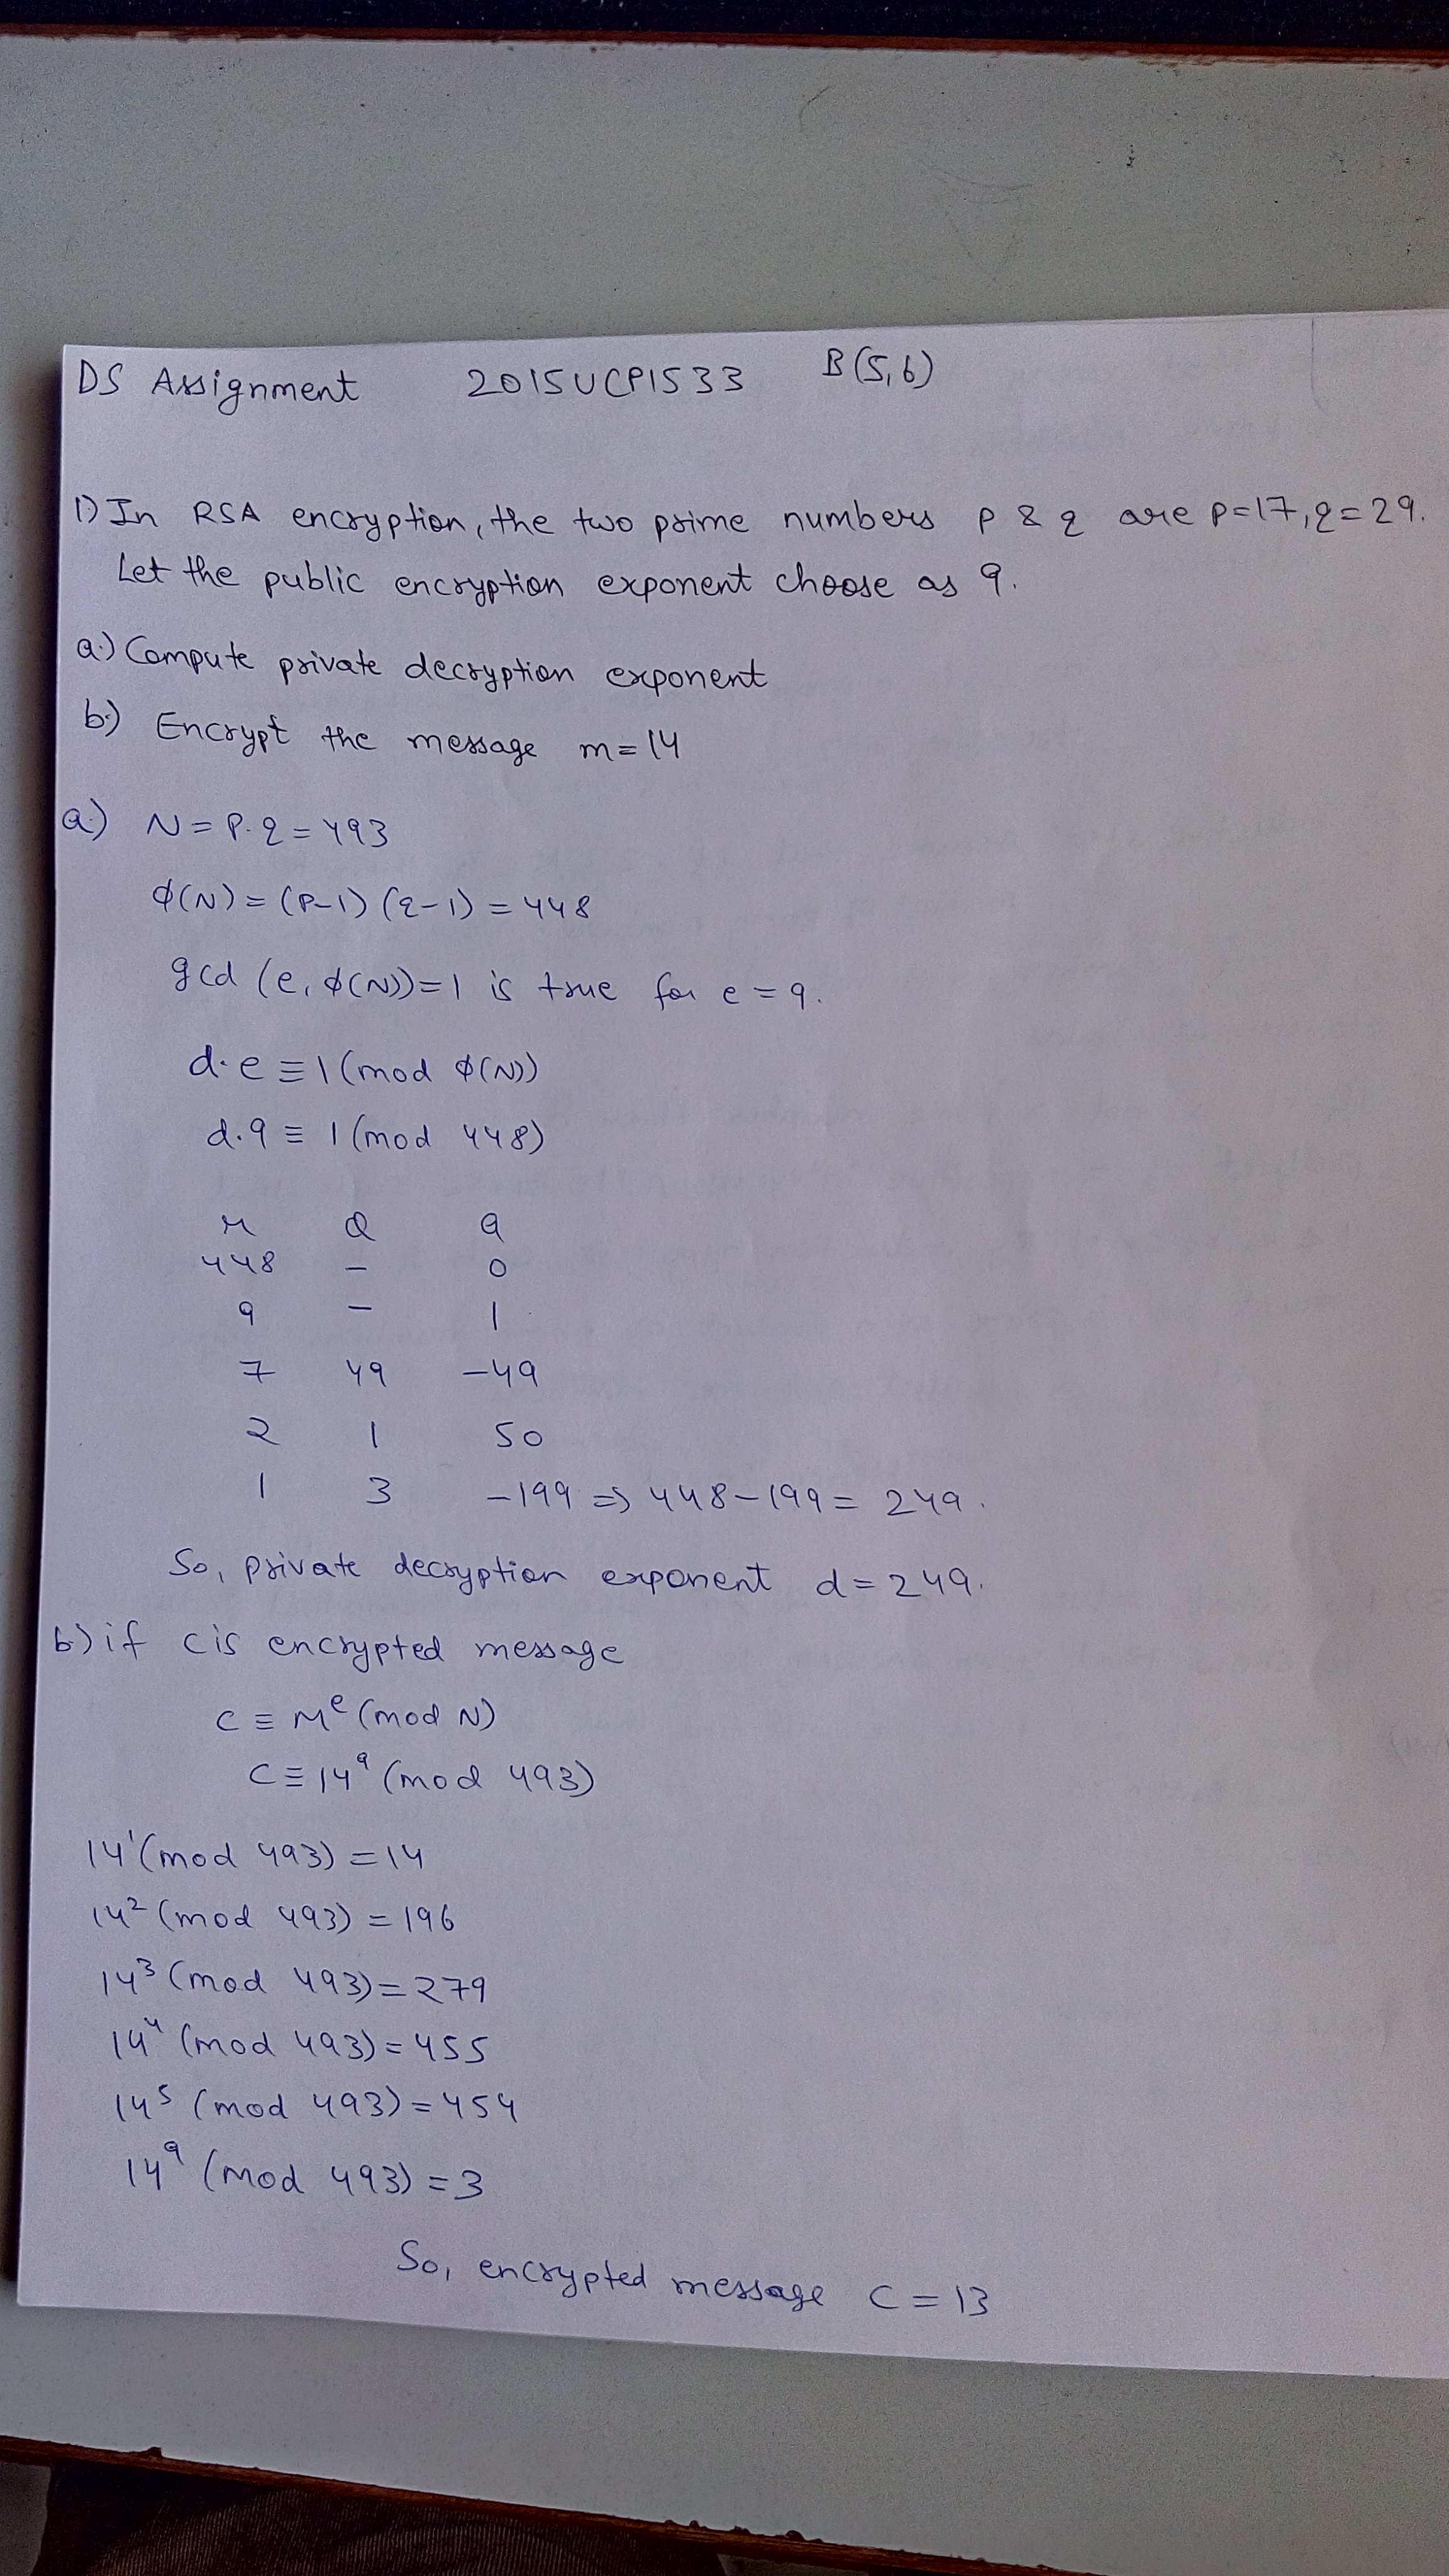 DS Assignment 2015UCP1533 B(5,6)
1) In RSA encryption, the two prime numbers p & q are p=17, q=29.
Let the public encryption exponent choose as 9.
a.) Compute private decryption exponent
b.) Encrypt the message m=14
a.) N = P.q = 493
ϕ(N) = (P-1) (q-1) = 448
gcd (e, ϕ(N)) = 1 is true for e = 9.
d.e ≡ 1 (mod ϕ(N))
d.9 ≡ 1 (mod 448)
r Q a
448 - 0
9 - 1
7 49 -49
2 1 50
1 3 -199 => 448-199 = 249.
So, private decryption exponent d = 249.
b.) if c is encrypted message
C ≡ M^e (mod N)
C ≡ 14^9 (mod 493)
14^1 (mod 493) = 14
14^2 (mod 493) = 196
14^3 (mod 493) = 279
14^4 (mod 493) = 455
14^5 (mod 493) = 454
14^9 (mod 493) = 3
So, encrypted message C = 13